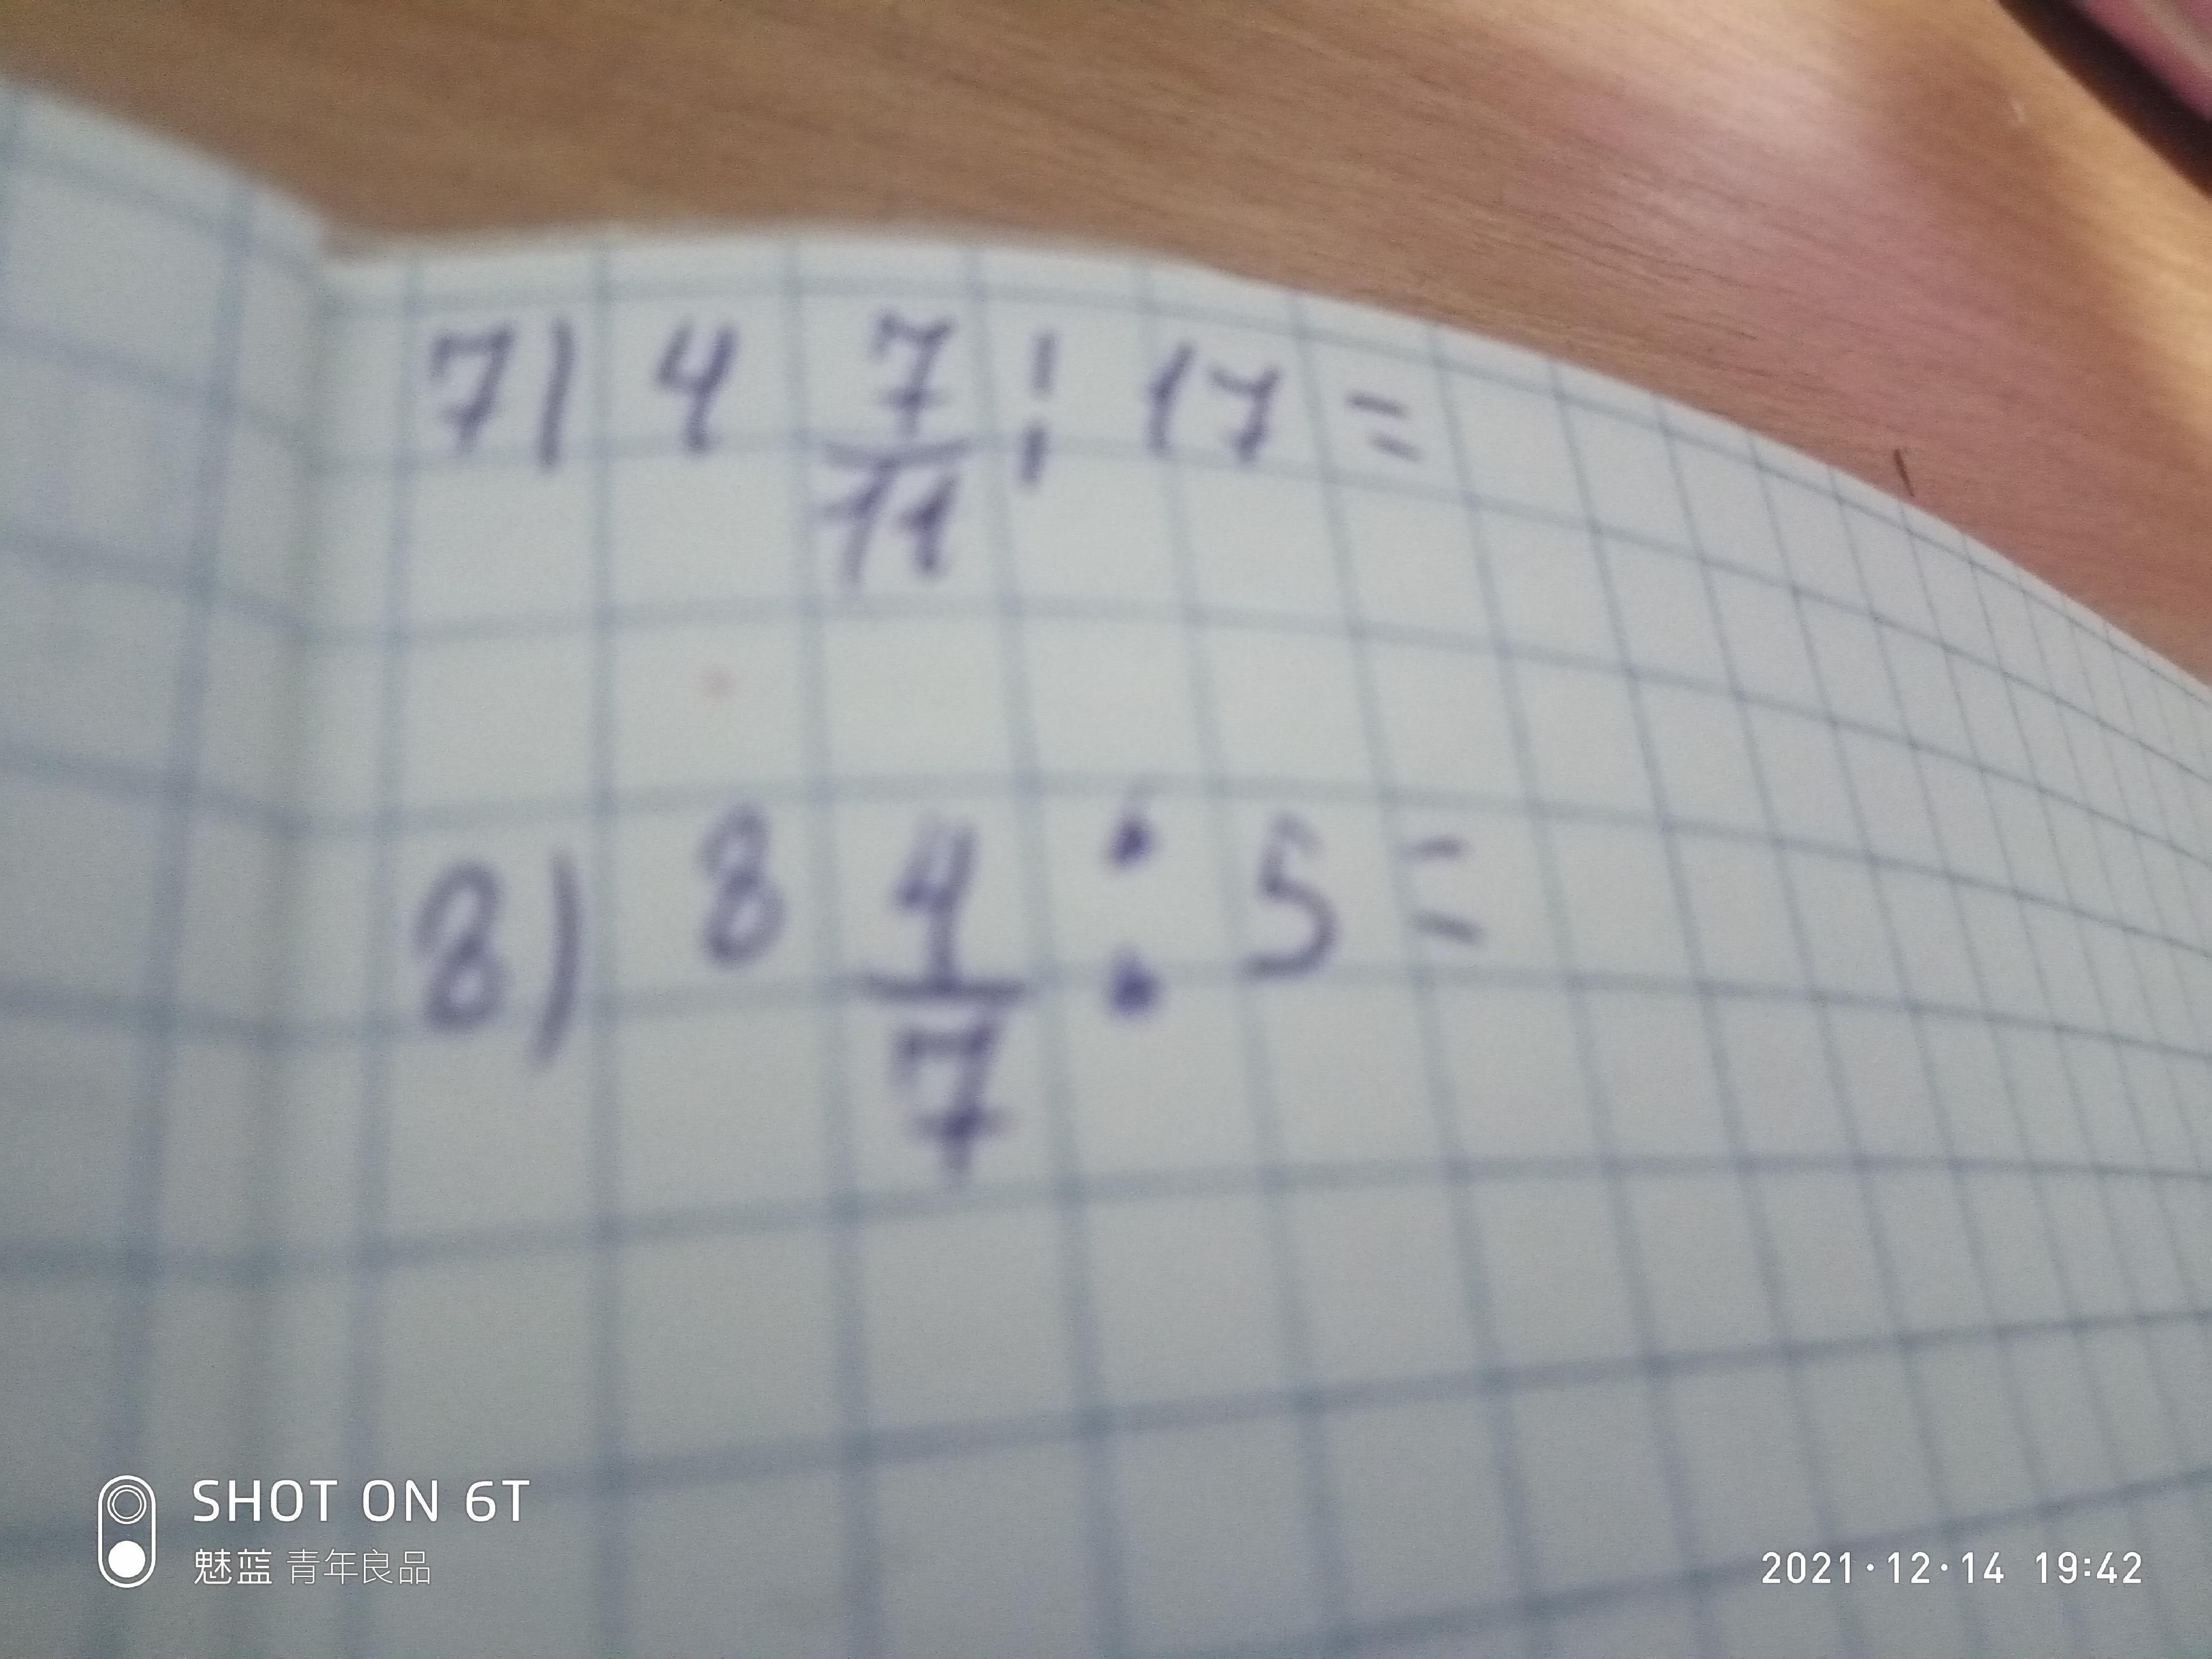 7) 4 7/11 : 17 =
8) 8 4/7 : 5 =
SHOT ON 6T
魅蓝 青年良品
2021·12·14 19:42